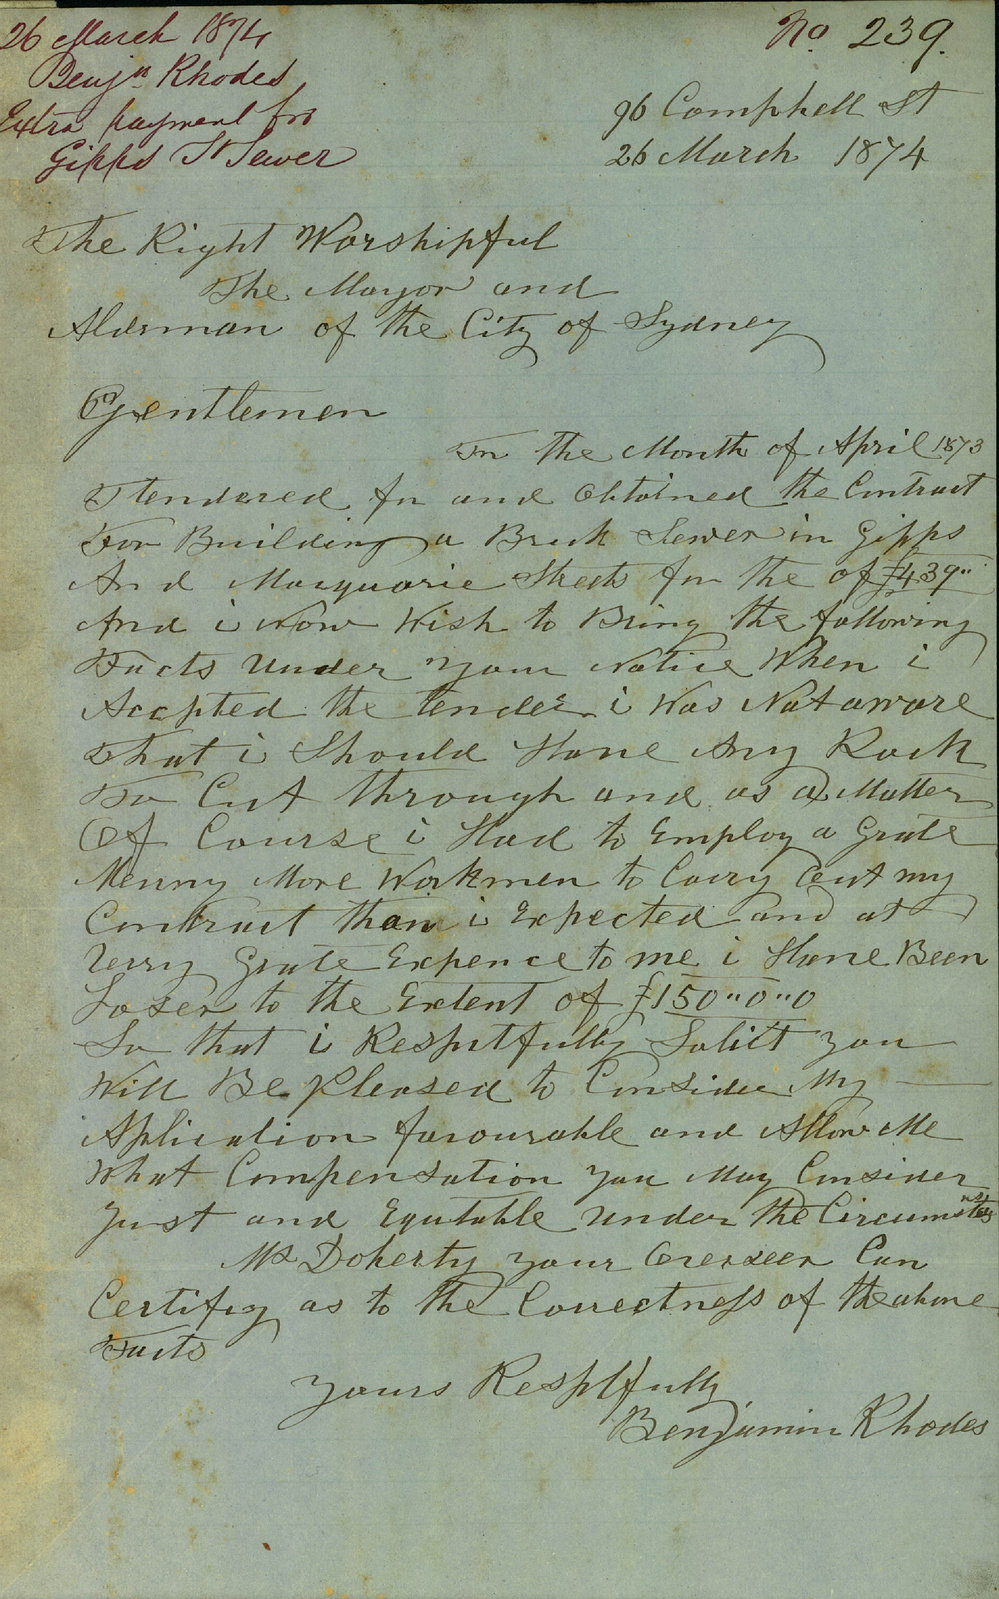 26 March 1874
Benjn Rhodes
Extra payment for
Gipps St Sewer
No 239.
96 Campbell St
26 March 1874
The Right Worshipful
The Mayor and
Alderman of the City of Sydney
Gentlemen
In the Month of April 1873
I tendered for and Obtained the Contract
For Building a Brick Sewer in Gipps
And Macquarie Streets for the of £439"
And i Now Wish to Bring the following
Facts Under Your Notice When i
Accpted the tender i Was Not aware
That i Should Have Any Rock
To Cut through and as a Matter
Of Course i Had to Employ a Grate
Menny More Workmen to Carry Out my
Contract than i Expected and at
Verry Grate Expence to me i Have Been
Loser to the Extent of £150"0"0
So that i Respctfully Solict you
Will Be Pleased to Consider My
Aplication favourable and Allow Me
What Compensation You May Consider
Just and Equtable Under the Circumstances
Mr Doherty your Overseer Can
Certifey as to the Correctness of the above
Facts
Yours Resptfully
Benjamin Rhodes